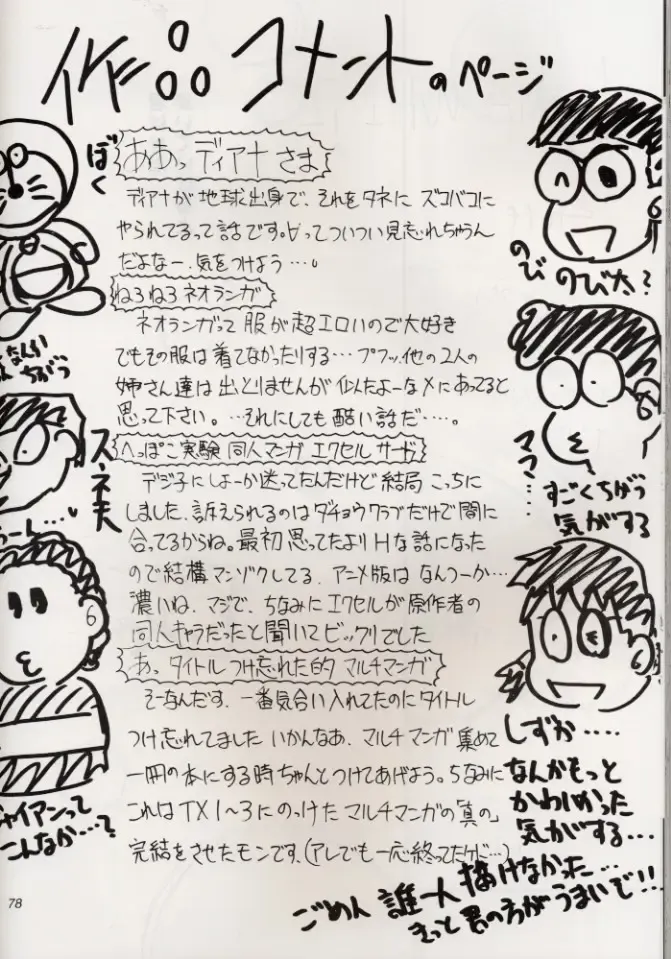 作品コメントのページ
ああっディアナさま
ディアナが地球出身で、それをタネに ズコバコに
やられてるって話です。∀ってついつい見忘れちゃうん
だよなー、気をつけよう…。
ねろねろネオランガ
ネオランガって 服が超エロいので大好き
でもその服は着てなかったりする…プフッ、他の2人の
姉さん達は出とりませんが似たよーなメにあってると
思って下さい。…それにしても酷い話だ…。
へっぽこ実験 同人マンガ エクセル サーガ
デジ子にしよーか迷ってたんだけど結局 こっちに
しました、訴えられるのはダチョウクラブだけで間に
合ってるからね。最初思ってたよりHな話になった
ので結構マンゾクしてる、アニメ版は なんつーか…
濃いね、マジで、ちなみにエクセルが原作者の
同人キャラだったと聞いてビックリでした
あ、タイトルつけ忘れた的 マルチマンガ
そーなんだす、一番気合い入れてたのにタイトル
つけ忘れてました いかんなあ、マルチマンガ集めて
一冊の本にする時ちゃんとつけてあげよう。ちなみに
これはTX1〜3にのっけたマルチマンガの「真の」
完結をさせたモンです、(アレでも一応終ってたけど…)
ぼく
なんか
ちがう
スネ夫
うーん…
ジャイアンって
こんなか…?
のび のび太?
ママ…
すごくちがう
気がする
しずか…
なんかもっと
かわいかった
気がする…
ごめん 誰一人 描けなかった…
きっと君の方がうまいで!!
78